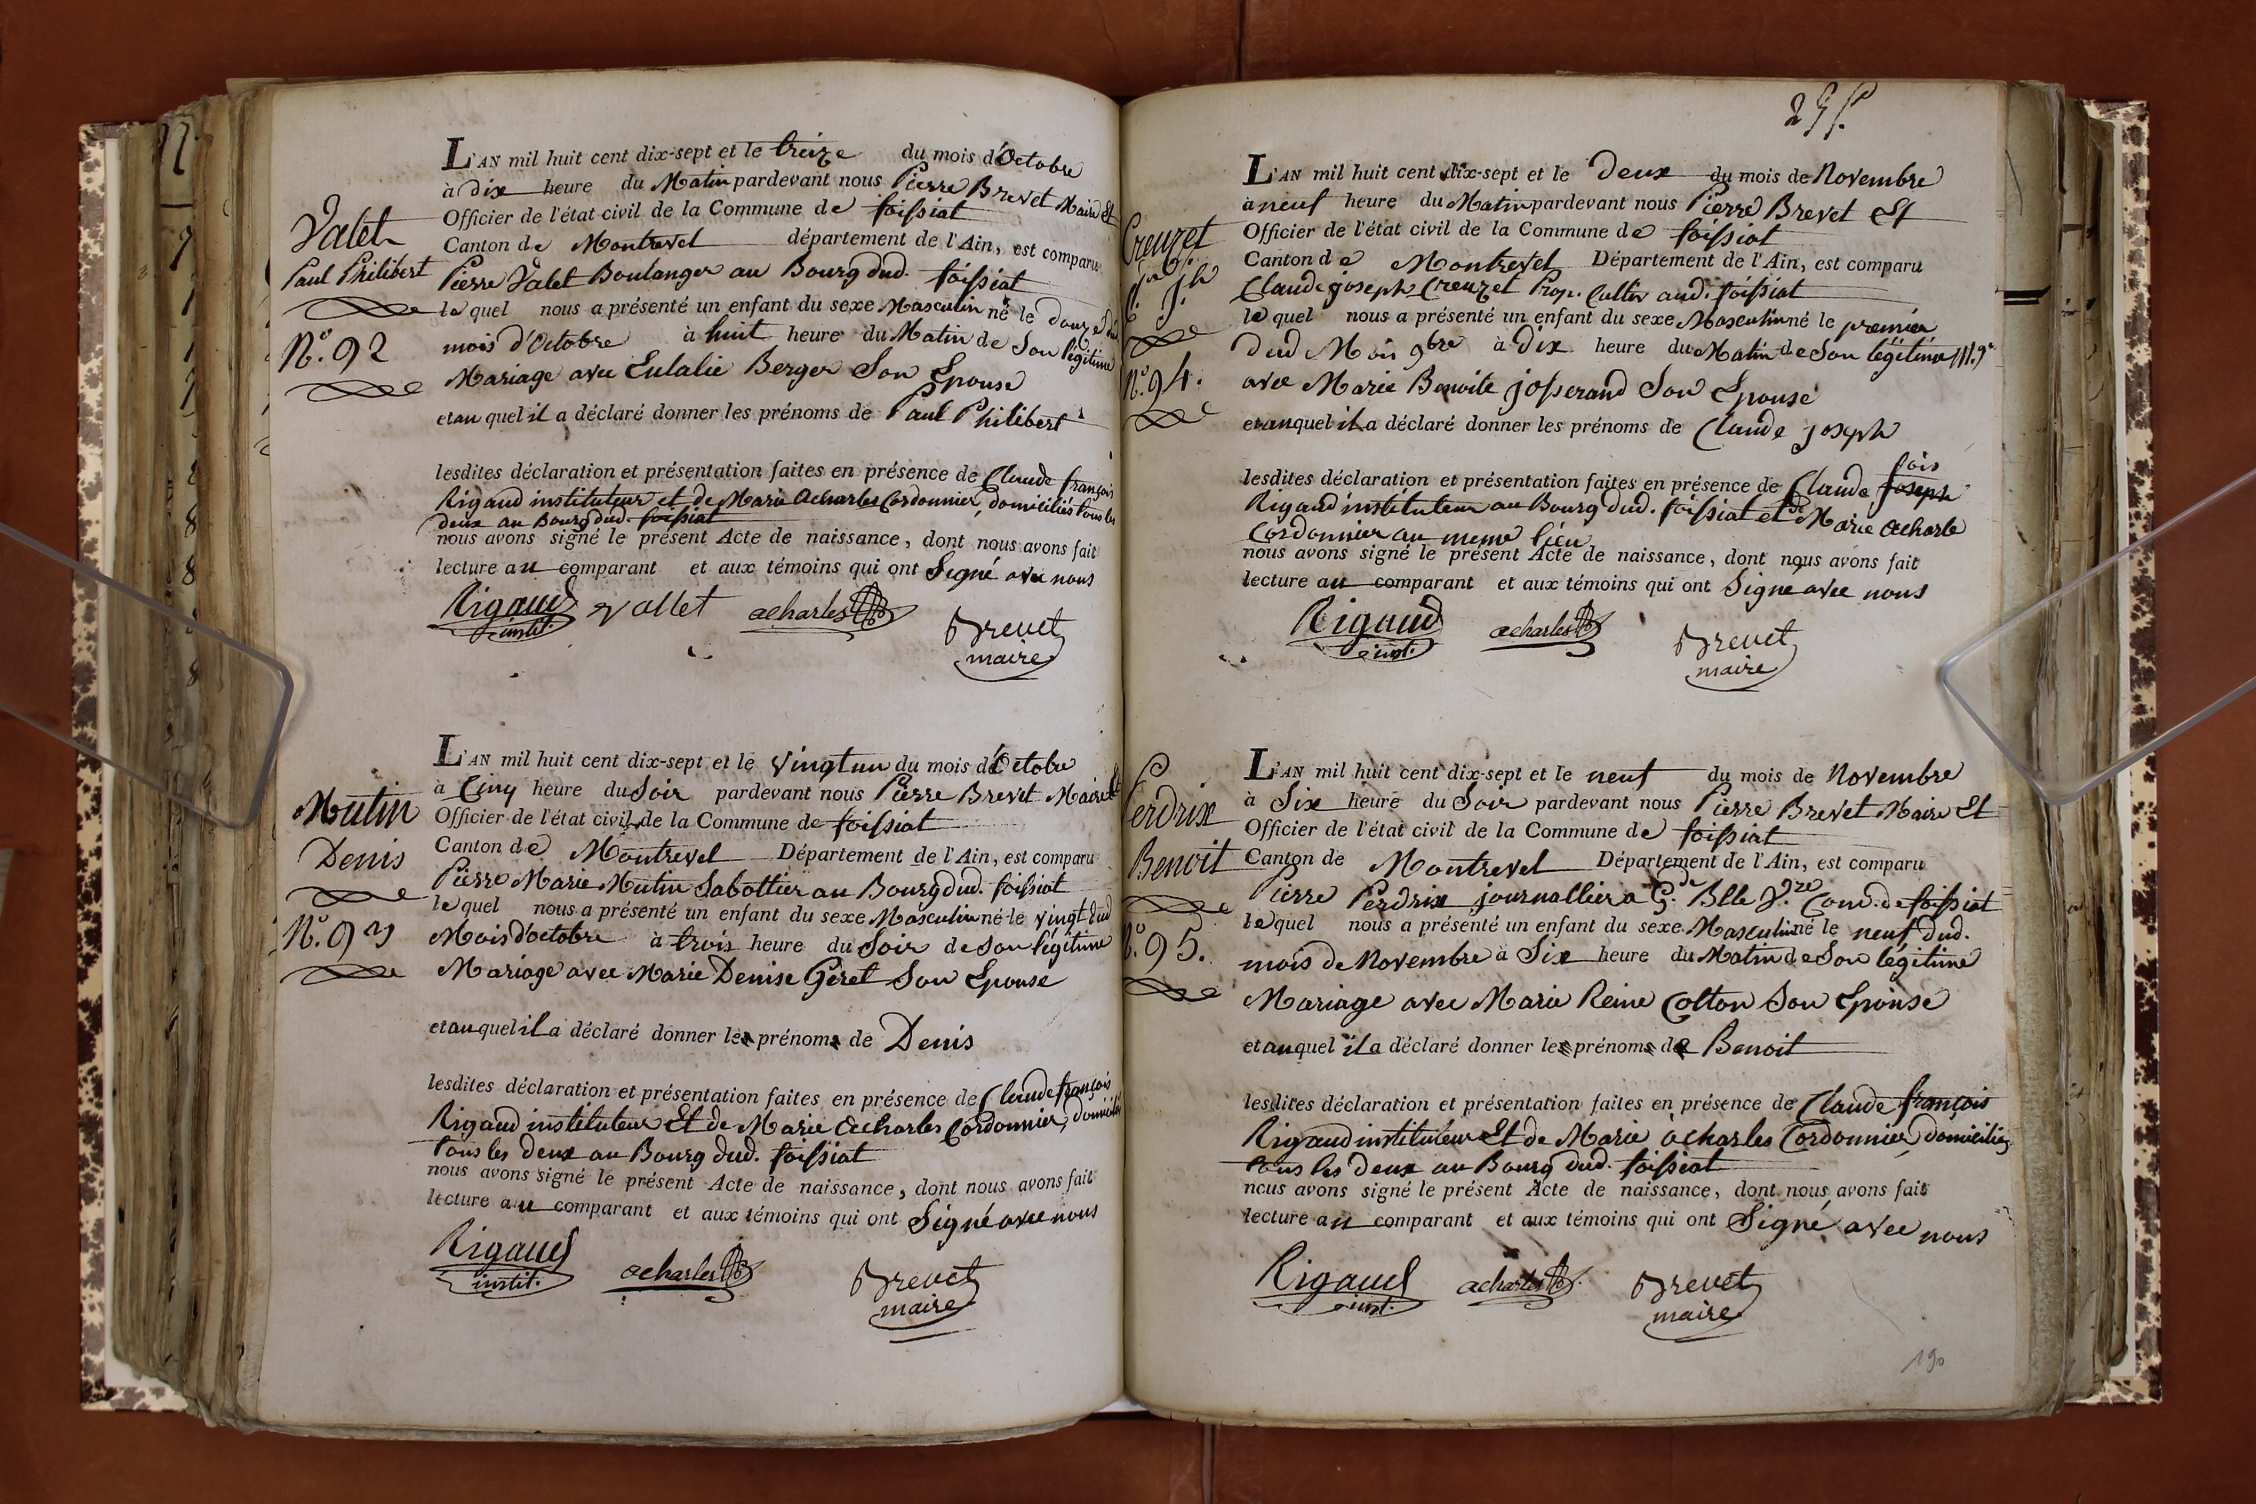 L'AN mil huit cent dix-sept et le treize du mois d'Octobre
à dix heure du Matin pardevant nous Pierre Brevet Maire Et
Officier de l'état civil de la Commune de foissiat
Canton de Montrevel département de l'Ain, est comparu
Pierre Valet Boulanger au Bourg dud. foissiat
lequel nous a présenté un enfant du sexe Masculin né le douze dud
mois d'Octobre à huit heure du Matin de Son légitime
Mariage avec Eulalie Berger Son Epouse
et au quel il a déclaré donner les prénoms de Paul Philibert
lesdites déclaration et présentation faites en présence de Claude françois
Rigaud instituteur et de Marie Acharles Cordonnier, domiciliés tous les
deux au Bourg dud. foissiat
nous avons signé le présent Acte de naissance, dont nous avons fait
lecture au comparant et aux témoins qui ont Signé avec nous
Rigaud vallet acharles Brevet
instit. maire
Valet
Paul Philibert
N.º 92
L'AN mil huit cent dix-sept et le vingtun du mois d'Octobre
à Cinq heure du Soir pardevant nous Pierre Brevet Maire Et
Officier de l'état civil de la Commune de foissiat
Canton de Montrevel Département de l'Ain, est comparu
Pierre Marie Mutin Sabottier au Bourg dud. foissiat
lequel nous a présenté un enfant du sexe Masculin né le vingt dud
Mois d'octobre à trois heure du Soir de Son légitime
Mariage avec Marie Denise Géret Son Epouse
et au quel il a déclaré donner les prénoms de Denis
lesdites déclaration et présentation faites en présence de Claude françois
Rigaud instituteur Et de Marie Acharles Cordonnier, domiciliés
tous les deux au Bourg dud. foissiat
nous avons signé le présent Acte de naissance, dont nous avons fait
lecture au comparant et aux témoins qui ont Signé avec nous
Rigaud acharles Brevet
instit. maire
Mutin
Denis
N.º 93
L'AN mil huit cent dix-sept et le Deux du mois de Novembre
à neuf heure du Matin pardevant nous Pierre Brevet Et
Officier de l'état civil de la Commune de foissiat
Canton de Montrevel Département de l'Ain, est comparu
Claude joseph Creuzet Prop. Cultiv aud. foissiat
lequel nous a présenté un enfant du sexe Masculin né le premier
dud Mois 9bre à dix heure du Matin de Son légitime M.ge
avec Marie Benoite josserand Son Epouse
et auquel il a déclaré donner les prénoms de Claude joseph
fois
lesdites déclaration et présentation faites en présence de Claude joseph
Rigaud instituteur au Bourg dud. foissiat et de Marie Acharle
Cordonnier au meme lieu
nous avons signé le présent Acte de naissance, dont nous avons fait
lecture au comparant et aux témoins qui ont Signé avec nous
Rigaud acharles Brevet
inst. maire
Creuzet
J.h
N.º 94.
L'AN mil huit cent dix-sept et le neuf du mois de Novembre
à Six heure du Soir pardevant nous Pierre Brevet Maire Et
Officier de l'état civil de la Commune de foissiat
Canton de Montrevel Département de l'Ain, est comparu
Pierre Perdrix journallier a G.de Com.de foissiat
lequel nous a présenté un enfant du sexe Masculin né le neuf dud.
mois de Novembre à Six heure du Matin de Son légitime
Mariage avec Marie Reine Cotton Son Epouse
et auquel il a déclaré donner les prénoms de Benoit
lesdites déclaration et présentation faites en présence de Claude françois
Rigaud instituteur Et de Marie àcharles Cordonnier, domiciliés
tous les deux au Bourg dud. foissiat
nous avons signé le présent Acte de naissance, dont nous avons fait
lecture au comparant et aux témoins qui ont Signé avec nous
Rigaud acharles Brevet
inst. maire
Perdrix
Benoit
N.º 95.
190